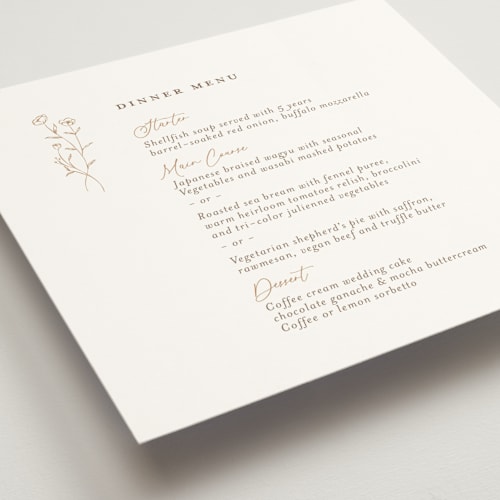 DINNER MENU
Starter
Shellfish soup served with 5 years
barrel-soaked red onion, buffalo mozzarella
Main Course
Japanese braised wagyu with seasonal
Vegetables and wasabi mashed potatoes
- or -
Roasted sea bream with fennel puree,
warm heirloom tomatoes relish, broccolini
and tri-color julienned vegetables
- or -
Vegetarian shepherd's pie with saffron,
rawmesan, vegan beef and truffle butter
Dessert
Coffee cream wedding cake
chocolate ganache & mocha buttercream
Coffee or lemon sorbetto